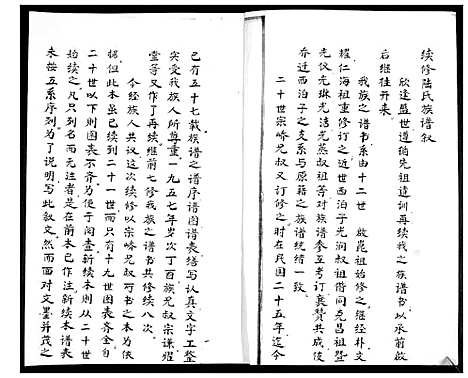 续修陆氏族谱叙
欣逢盛世遵循先祖遗训再续我之族谱书以承前启
后继往开来
我族之谱书系由十二世 啟崑祖始修之继经朴文
耀仁海祖重修订之近世西泊子光润叔祖偕同克昌祖暨
光仪光琳光洁光燕叔祖等对族谱参互考订襄赞共成使
乔迁西泊子之支系与原在之族谱统绪一致
二十世宗峤兄叔又订修之时在民国二十五年迄今
已有五十七载族谱之谱序谱图谱表缮写认真文字工整
实受我族人所尊重一九五七年岁次丁酉族兄叔宗谦耀
堂等又作了再续继前七修我族之谱书共修续八次
今经族人共议这次续修以宗峤兄叔可书之本为依
据但此本虽已续到二十一世而只有十九世图表齐全
二十世以下则图表不齐为便于阅查新续本则从二十世
始续之凡只列名而无注者是在前本已作注新续本谱表
未按五系序列为了说明写此叙文然而面对文墨并茂之